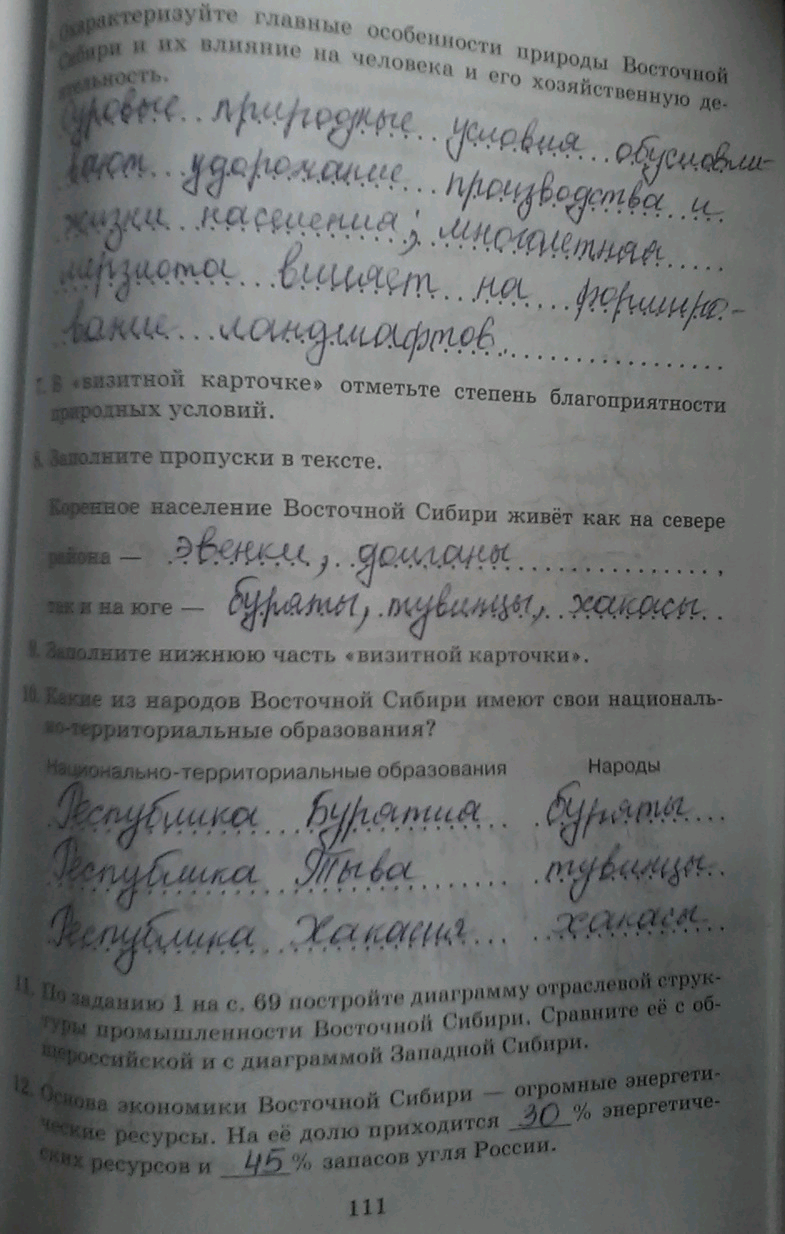 Охарактеризуйте главные особенности природы Восточной
Сибири и их влияние на человека и его хозяйственную де-
ятельность.
Суровые природные условия обусловли-
вают удорожание производства и
жизни населения; многолетняя
мерзлота влияет на формиро-
вание ландшафтов.
7. В «визитной карточке» отметьте степень благоприятности
природных условий.
8. Заполните пропуски в тексте.
Коренное население Восточной Сибири живёт как на севере
района — эвенки, долганы,
так и на юге — буряты, тувинцы, хакасы.
9. Заполните нижнюю часть «визитной карточки».
10. Какие из народов Восточной Сибири имеют свои националь-
но-территориальные образования?
Национально-территориальные образования Народы
Республика Бурятия буряты
Республика Тыва тувинцы
Республика Хакасия хакасы
11. По заданию 1 на с. 69 постройте диаграмму отраслевой струк-
туры промышленности Восточной Сибири. Сравните её с об-
щероссийской и с диаграммой Западной Сибири.
12. Основа экономики Восточной Сибири — огромные энергети-
ческие ресурсы. На её долю приходится 30 % энергетиче-
ских ресурсов и 45 % запасов угля России.
111